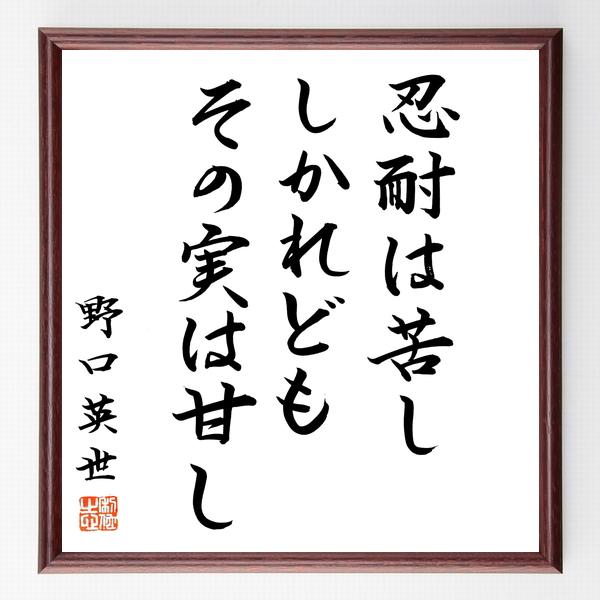 忍耐は苦し
しかれども
その実は甘し
野口英世